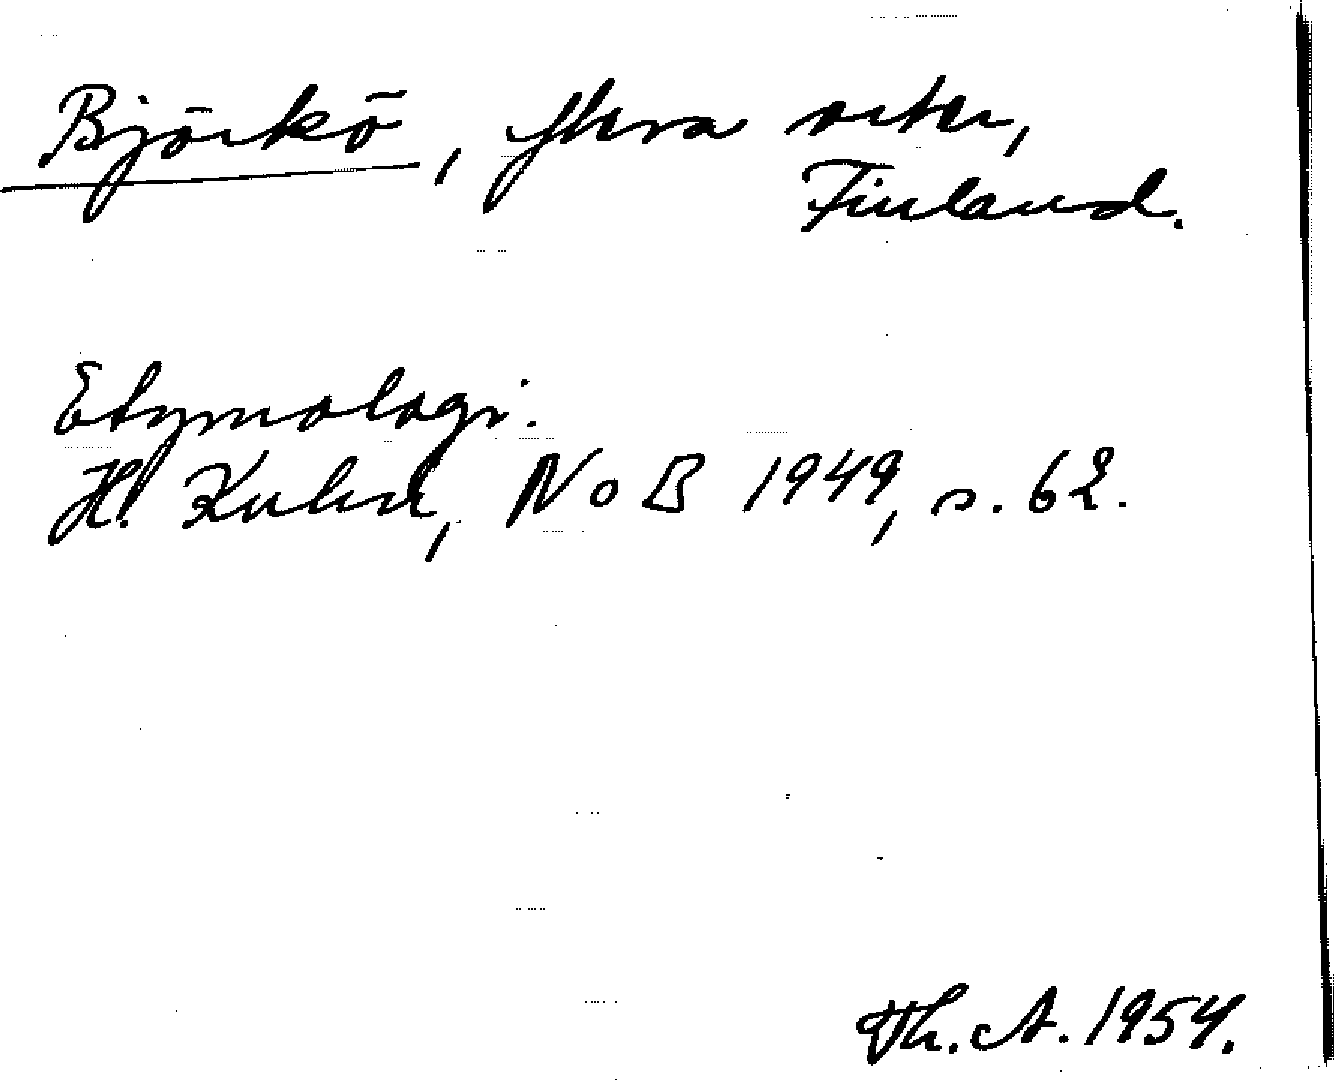 Björkö, flera orter,
Finland.
Etymologi.
H. Kuhn, NoB 1949, s. 62.
Th. A. 1954.